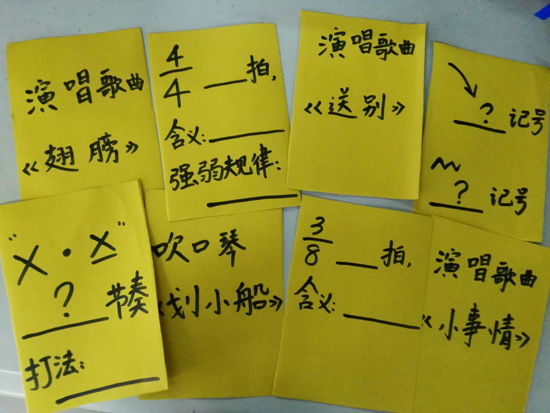 演唱歌曲
《翅膀》
4/4 ___拍,
含义:______
强弱规律:
______
演唱歌曲
《送别》
↘
__?__记号
~
__?__记号
"X · X"
__?__节奏
打法:______
吹口琴
《划小船》
3/8 ___拍,
含义:______
演唱歌曲
《小事情》